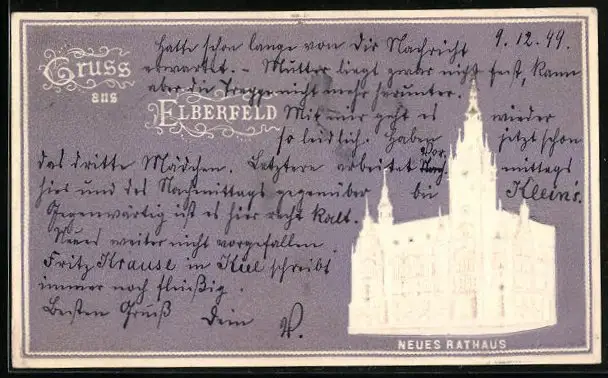 Gruss
aus
ELBERFELD
9.12.99.
Hatte schon lange von Dir Nachricht
erwartet. - Mutter liegt zwar nicht fest, kann
aber die Treppe nicht mehr herunter.
Mit mir geht es wieder
so leidlich. Haben jetzt schon
das dritte Mädchen. Letztere arbeitet Vor mittags
hier und des Nachmittags gegenüber bei Klein's.
Gegenwärtig ist es hier recht kalt.
Neues weiter nicht vorgefallen.
Fritz Krause in Kiel schreibt
immer noch fleißig.
Besten Gruß Dein W.
NEUES RATHAUS